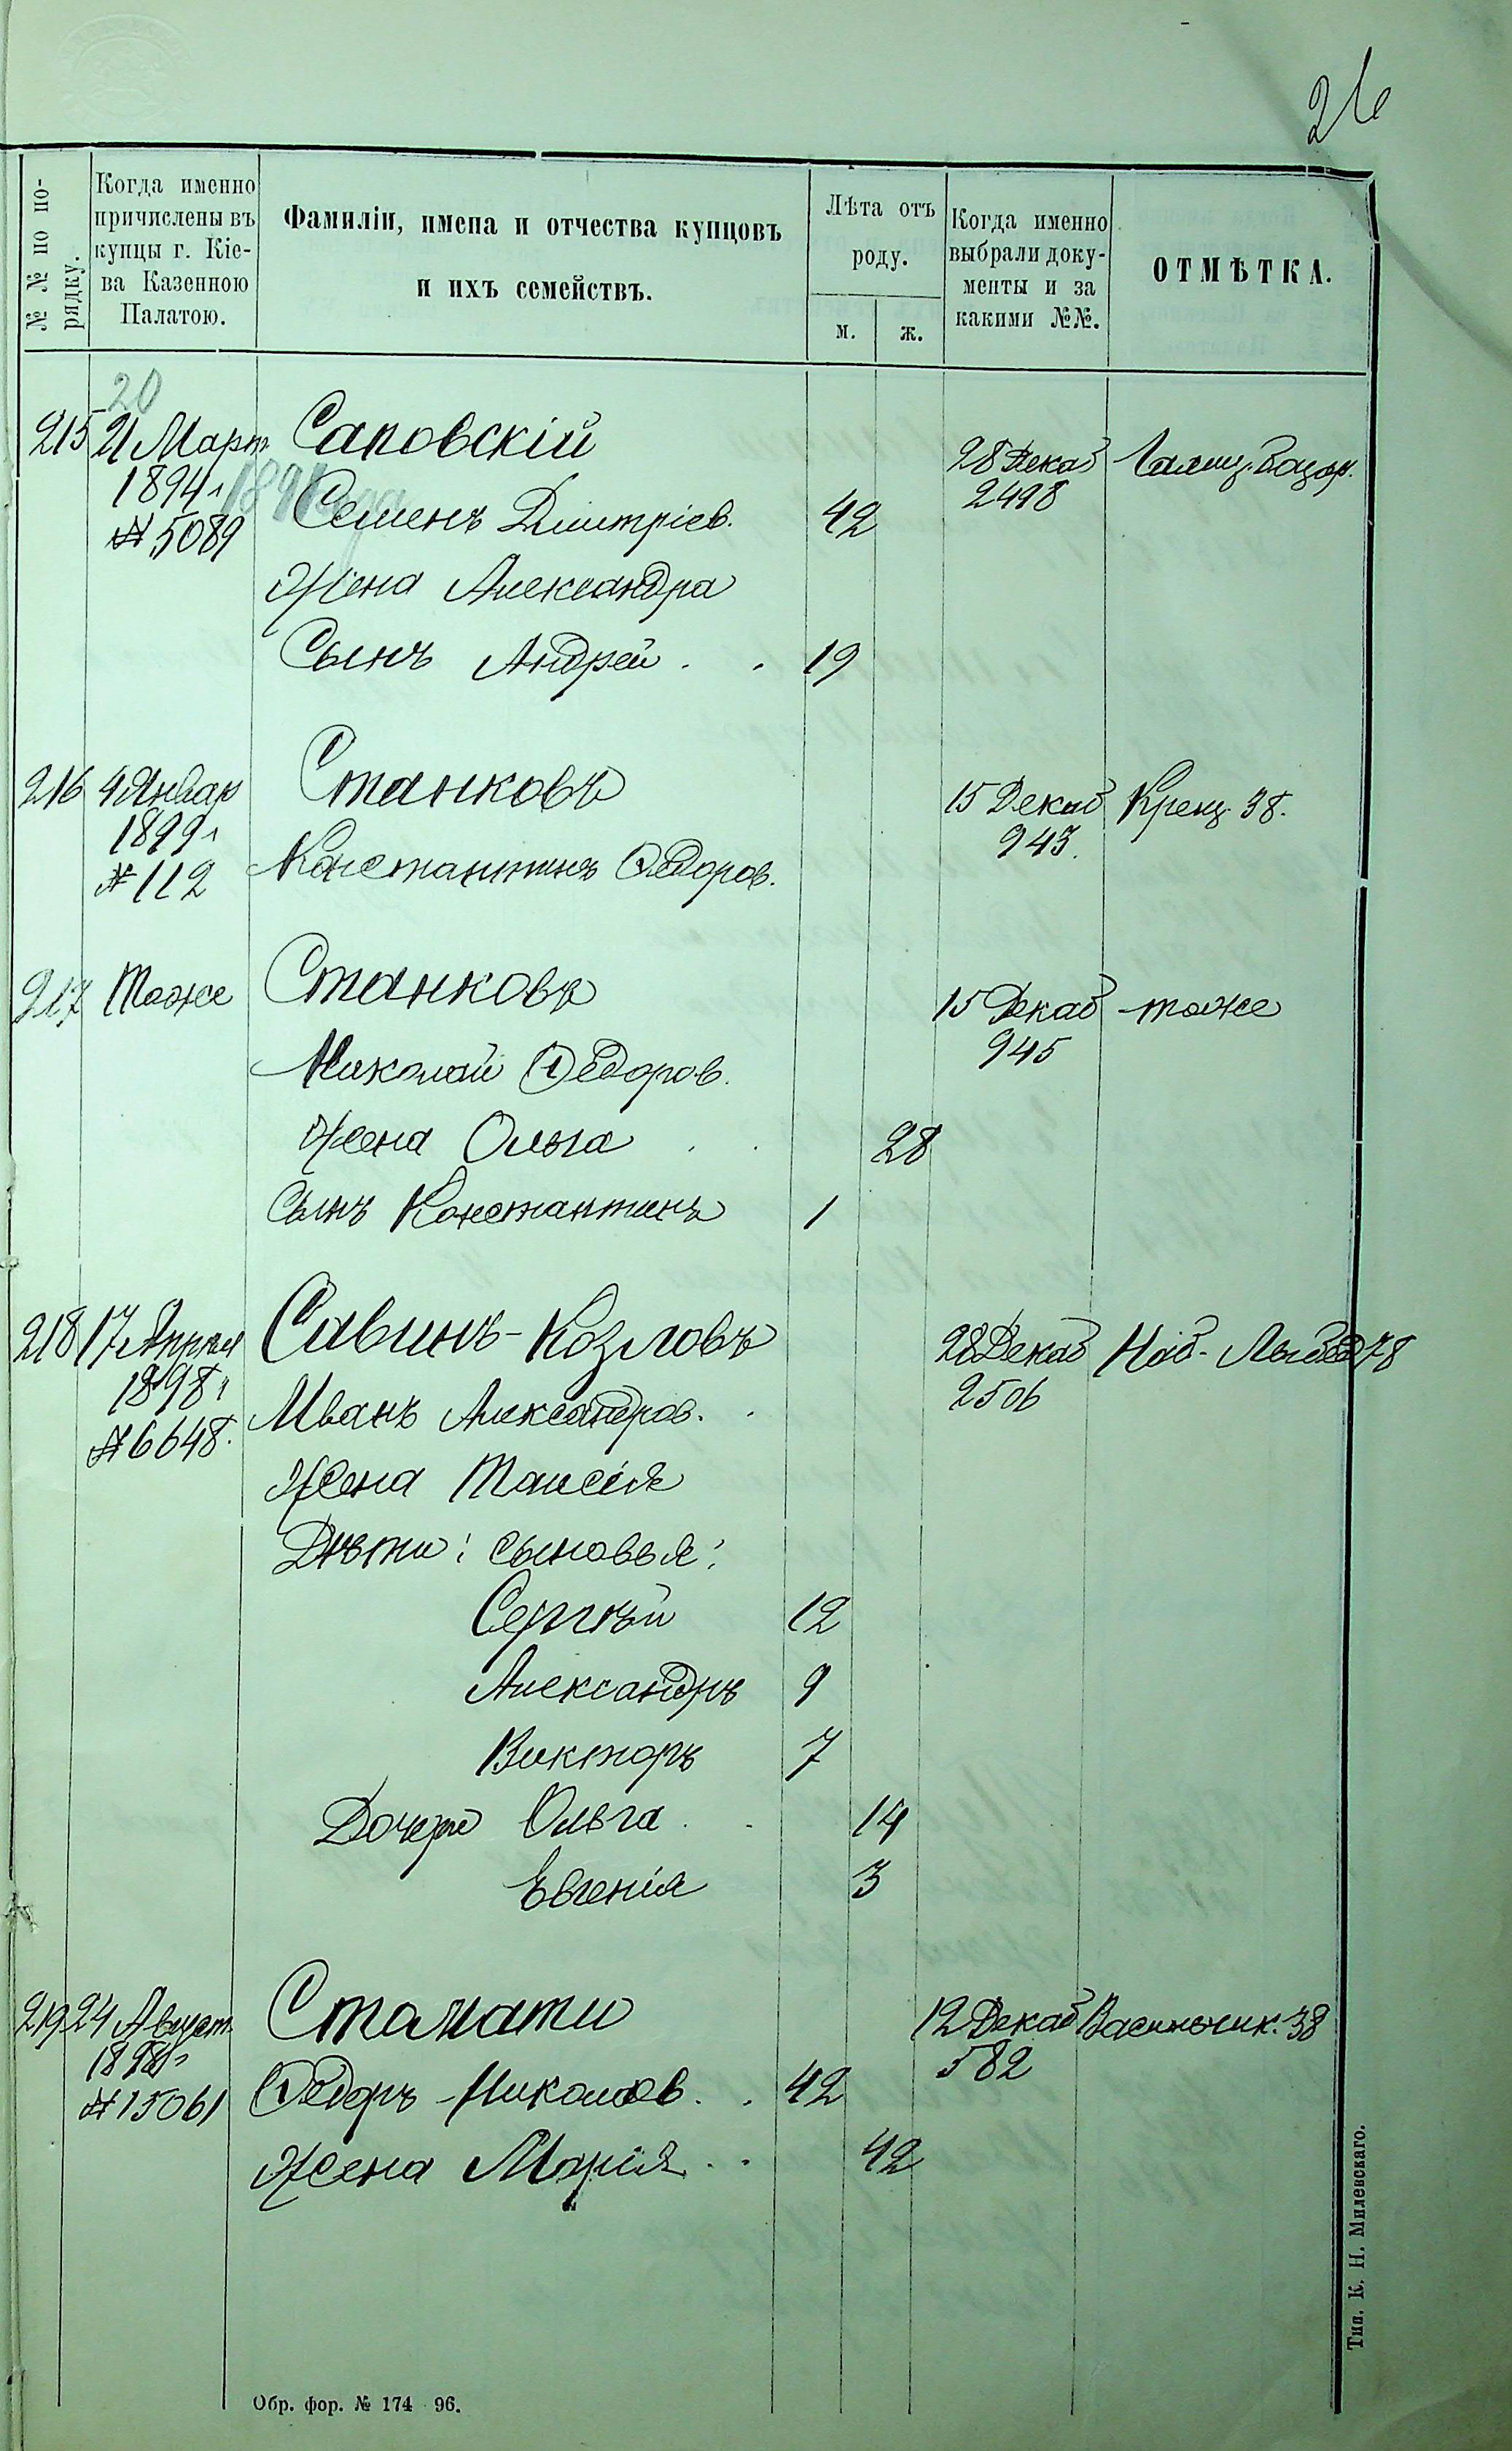 26
№ № по по-
рядку.
Когда именно
причислены въ
купцы г. Кіе-
ва Казенною
Палатою.
Фамиліи, имена и отчества купцовъ
и ихъ семействъ.
Лѣта отъ
роду.
м.
ж.
Когда именно
выбрали доку-
менты и за
какими №№.
ОТМѢТКА.
20
215 21 Март Саповскій 28 Декаб Галиц. базар.
1894 г 2498
1891
№ 5089 Семенъ Дмитріев. 42
Жена Александра
Сынъ Андрей . . 19
216 4 Январ Станковъ 15 Декаб Крещ. 38.
1899 г 943.
№ 112 Константинъ Ѳедоров.
217 Тоже Станковъ 15 Декаб тоже
Николай Ѳедоров. 945
Жена Ольга . . 28
Сынъ Константинъ 1
218 17 Апрѣл Савинъ-Козловъ 28 Декаб Наб-Лыбед 78
1898 г 2506
№ 6648. Иванъ Александров. .
Жена Таисія
Дѣти: сыновья:
Сергѣй 12
Александръ 9
Викторъ 7
Дочери Ольга . . 14
Евгенія 3
219 24 Август. Стамати 12 Декаб Васильчик. 38
582
№ 15061 Ѳедоръ Николаев. . 42
Жена Марія . . 42
Обр. фор. № 174 96.
Тип. К. Н. Милевскаго.